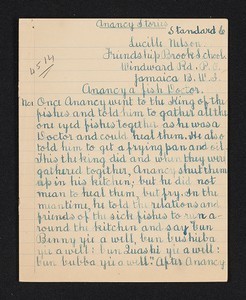 Anancy Stories
Standard 6
Lucille Wilson
Friendship Brook School
Windward Rd. P.O.
Jamaica B.W.I.
Anancy a fish Doctor.
Once Anancy went to the King of the
fishes and told him to gather all the
one eyed fishes together as he was a
Doctor and could heal them. He also
told him to get a frying pan and oil.
This the king did and when they were
gathered together, Anancy shut them
up in his kitchen; but he did not
mean to heal them, but fry. In the
meantime, he told the relations and
friends of the sick fishes to run a
round the kitchen and say bun
Binny yie a well, bun bushuba
yie a well: bun Quashi yie a well:
bun bubba yie a well." After Anancy